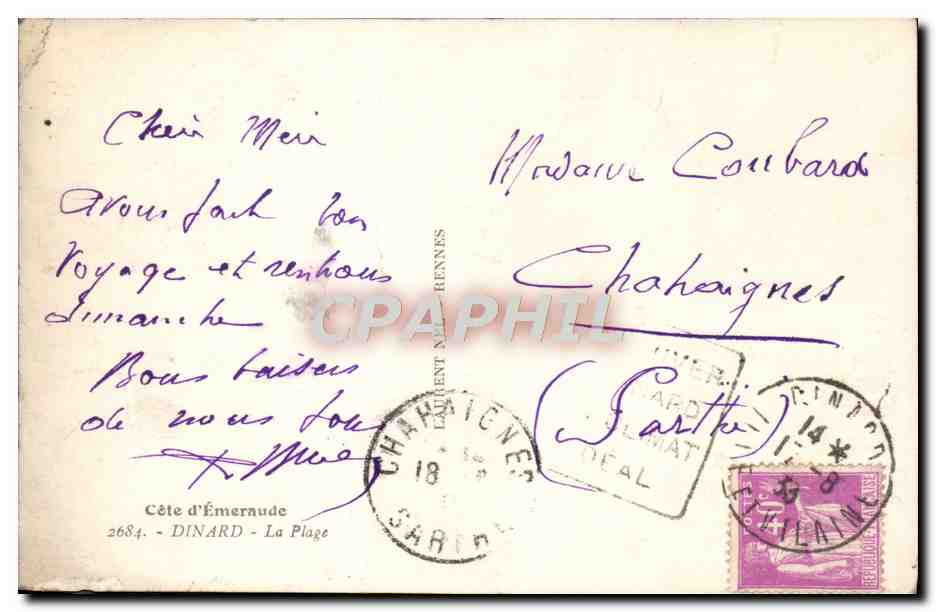 Avons fait bon
Voyage et rentrons
dimanche
Bons baisers
de nous tous
Côte d'Émeraude
2684. - DINARD - La Plage
LAURENT NEL RENNES
CPAPHIL
Madame Coubard
Chahaignes
(Sarthe)
CHAHAIGNES
18
SARTHE
HIVER
CLIMAT
IDEAL
DINARD
14 *
ILLE ET VILAINE
POSTES
40c
REPUBLIQUE FRANÇAISE